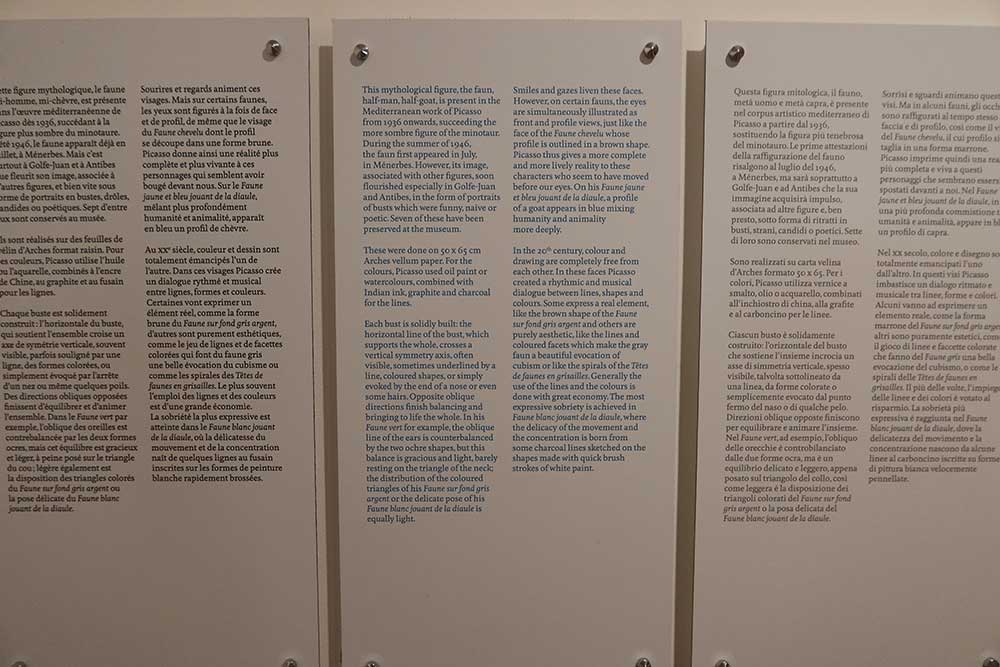 ette figure mythologique, le faune
i-homme, mi-chèvre, est présente
ans l'œuvre méditerranéenne de
casso dès 1936, succédant à la
gure plus sombre du minotaure.
été 1946, le faune apparaît déjà en
illet, à Ménerbes. Mais c'est
artout à Golfe-Juan et à Antibes
ue fleurit son image, associée à
'autres figures, et bien vite sous
orme de portraits en bustes, drôles,
andides ou poétiques. Sept d'entre
ux sont conservés au musée.
ls sont réalisés sur des feuilles de
élin d'Arches format raisin. Pour
es couleurs, Picasso utilise l'huile
ou l'aquarelle, combinés à l'encre
de Chine, au graphite et au fusain
pour les lignes.
Chaque buste est solidement
construit : l'horizontale du buste,
qui soutient l'ensemble croise un
axe de symétrie verticale, souvent
visible, parfois souligné par une
ligne, des formes colorées, ou
simplement évoqué par l'arrête
d'un nez ou même quelques poils.
Des directions obliques opposées
finissent d'équilibrer et d'animer
l'ensemble. Dans le Faune vert par
exemple, l'oblique des oreilles est
contrebalancée par les deux formes
ocres, mais cet équilibre est gracieux
et léger, à peine posé sur le triangle
du cou ; légère également est
la disposition des triangles colorés
du Faune sur fond gris argent ou
la pose délicate du Faune blanc
jouant de la diaule.
Sourires et regards animent ces
visages. Mais sur certains faunes,
les yeux sont figurés à la fois de face
et de profil, de même que le visage
du Faune chevelu dont le profil
se découpe dans une forme brune.
Picasso donne ainsi une réalité plus
complète et plus vivante à ces
personnages qui semblent avoir
bougé devant nous. Sur le Faune
jaune et bleu jouant de la diaule,
mêlant plus profondément
humanité et animalité, apparaît
en bleu un profil de chèvre.
Au XXe siècle, couleur et dessin sont
totalement émancipés l'un de
l'autre. Dans ces visages Picasso crée
un dialogue rythmé et musical
entre lignes, formes et couleurs.
Certaines vont exprimer un
élément réel, comme la forme
brune du Faune sur fond gris argent,
d'autres sont purement esthétiques,
comme le jeu de lignes et de facettes
colorées qui font du faune gris
une belle évocation du cubisme ou
comme les spirales des Têtes de
faunes en grisailles. Le plus souvent
l'emploi des lignes et des couleurs
est d'une grande économie.
La sobriété la plus expressive est
atteinte dans le Faune blanc jouant
de la diaule, où la délicatesse du
mouvement et de la concentration
naît de quelques lignes au fusain
inscrites sur les formes de peinture
blanche rapidement brossées.
This mythological figure, the faun,
half-man, half-goat, is present in the
Mediterranean work of Picasso
from 1936 onwards, succeeding the
more sombre figure of the minotaur.
During the summer of 1946,
the faun first appeared in July,
in Ménerbes. However, its image,
associated with other figures, soon
flourished especially in Golfe-Juan
and Antibes, in the form of portraits
of busts which were funny, naive or
poetic. Seven of these have been
preserved at the museum.
These were done on 50 x 65 cm
Arches vellum paper. For the
colours, Picasso used oil paint or
watercolours, combined with
Indian ink, graphite and charcoal
for the lines.
Each bust is solidly built: the
horizontal line of the bust, which
supports the whole, crosses a
vertical symmetry axis, often
visible, sometimes underlined by a
line, coloured shapes, or simply
evoked by the end of a nose or even
some hairs. Opposite oblique
directions finish balancing and
bringing to life the whole. In his
Faune vert for example, the oblique
line of the ears is counterbalanced
by the two ochre shapes, but this
balance is gracious and light, barely
resting on the triangle of the neck;
the distribution of the coloured
triangles of his Faune sur fond gris
argent or the delicate pose of his
Faune blanc jouant de la diaule is
equally light.
Smiles and gazes liven these faces.
However, on certain fauns, the eyes
are simultaneously illustrated as
front and profile views, just like the
face of the Faune chevelu whose
profile is outlined in a brown shape.
Picasso thus gives a more complete
and more lively reality to these
characters who seem to have moved
before our eyes. On his Faune jaune
et bleu jouant de la diaule, a profile
of a goat appears in blue mixing
humanity and animality
more deeply.
In the 20th century, colour and
drawing are completely free from
each other. In these faces Picasso
created a rhythmic and musical
dialogue between lines, shapes and
colours. Some express a real element,
like the brown shape of the Faune
sur fond gris argent and others are
purely aesthetic, like the lines and
coloured facets which make the gray
faun a beautiful evocation of
cubism or like the spirals of the Têtes
de faunes en grisailles. Generally the
use of the lines and the colours is
done with great economy. The most
expressive sobriety is achieved in
Faune blanc jouant de la diaule, where
the delicacy of the movement and
the concentration is born from
some charcoal lines sketched on the
shapes made with quick brush
strokes of white paint.
Questa figura mitologica, il fauno,
metà uomo e metà capra, è presente
nel corpus artistico mediterraneo di
Picasso a partire dal 1936,
sostituendo la figura più tenebrosa
del minotauro. Le prime attestazioni
della raffigurazione del fauno
risalgono al luglio del 1946,
a Ménerbes, ma sarà soprattutto a
Golfe-Juan e ad Antibes che la sua
immagine acquisirà impulso,
associata ad altre figure e, ben
presto, sotto forma di ritratti in
busti, strani, candidi o poetici. Sette
di loro sono conservati nel museo.
Sono realizzati su carta velina
d'Arches formato 50 x 65. Per i
colori, Picasso utilizza vernice a
smalto, olio o acquarello, combinati
all'inchiostro di china, alla grafite
e al carboncino per le linee.
Ciascun busto è solidamente
costruito: l'orizzontale del busto
che sostiene l'insieme incrocia un
asse di simmetria verticale, spesso
visibile, talvolta sottolineato da
una linea, da forme colorate o
semplicemente evocato dal punto
fermo del naso o di qualche pelo.
Direzioni oblique opposte finiscono
per equilibrare e animare l'insieme.
Nel Faune vert, ad esempio, l'obliquo
delle orecchie è controbilanciato
dalle due forme ocra, ma è un
equilibrio delicato e leggero, appena
posato sul triangolo del collo, così
come leggera è la disposizione dei
triangoli colorati del Faune sur fond
gris argent o la posa delicata del
Faune blanc jouant de la diaule.
Sorrisi e sguardi animano quest
visi. Ma in alcuni fauni, gli occh
sono raffigurati al tempo stesso
faccia e di profilo, così come il v
del Faune chevelu, il cui profilo si
taglia in una forma marrone.
Picasso imprime quindi una rea
più completa e viva a questi
personaggi che sembrano essers
spostati davanti a noi. Nel Faune
jaune et bleu jouant de la diaule, in
una più profonda commistione
umanità e animalità, appare in bl
un profilo di capra.
Nel XX secolo, colore e disegno so
totalmente emancipati l'uno
dall'altro. In questi visi Picasso
imbastisce un dialogo ritmato e
musicale tra linee, forme e colori.
Alcuni vanno ad esprimere un
elemento reale, come la forma
marrone del Faune sur fond gris argen
altri sono puramente estetici, com
il gioco di linee e faccette colorate
che fanno del Faune gris una bella
evocazione del cubismo, o come le
spirali delle Têtes de faunes en
grisailles. Il più delle volte, l'impieg
delle linee e dei colori è votato al
risparmio. La sobrietà più
espressiva è raggiunta nel Faune
blanc jouant de la diaule, dove la
delicatezza del movimento e la
concentrazione nascono da alcune
linee al carboncino iscritte su forme
di pittura bianca velocemente
pennellate.